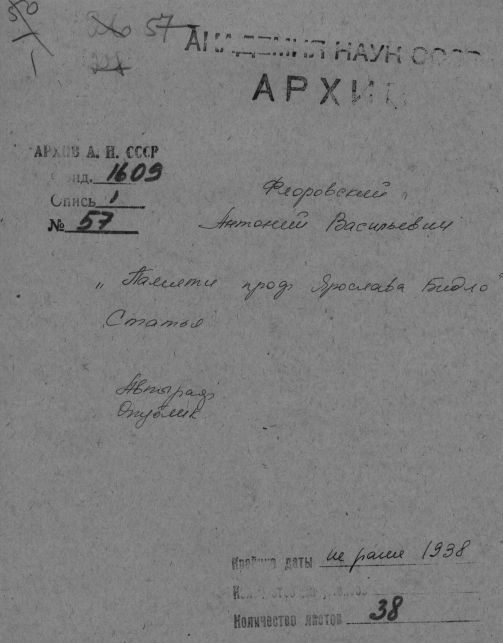 50
1
57
АКАДЕМИЯ НАУК СССР
АРХИВ
АРХИВ А. Н. СССР
Фонд. 1609
Опись 1
№ 57
Флоровский
Антоний Васильевич
„Памяти проф. Ярослава Бидло"
Статья
Автограф
Опублик
Крайние даты не ранее 1938
Количество листов 38